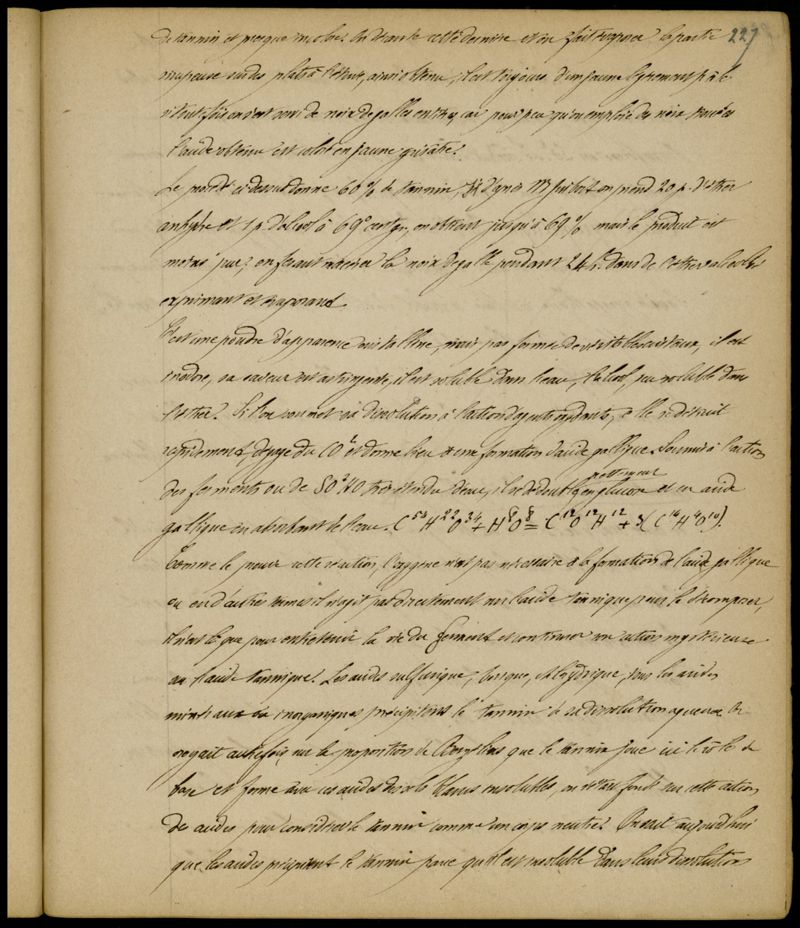 227
de tannin et presque incolore. On décante cette dernière et on fait évaporer la partie
sirupeuse sur des plats à l'étuve, ainsi obtenu, il est toujours d'un jaune légèrement pâle
si toutefois on s'est servi de noix de galles entières, car pour peu qu'on emploie des noix
l'acide obtenu est coloré en jaune grisâtre.
Le procédé ci dessus donne 60 % de tannin, si d'après Mr Guibourt on prend 20 p. d'éther
et 1 p. d'alcool à 69° centgr, on obtient jusqu'à 69 % mais le produit est
moins pur; en faisant macérer la noix de galle pendant 24 h. dans de l'éther alcoolisé
exprimant et évaporant.
C'est une poudre d'apparence cristalline, mais pas formée de véritables cristaux, il est
inodore, sa saveur est astringente, il est soluble dans l'eau, l'alcool, peu soluble dans
l'éther. Si l'on soumet sa dissolution à l'action d'agents oxydants, elle se détruit
rapidement, dégage du CO² et donne lieu à une formation d'acide gallique. Soumis à l'action
des ferments ou de SO³HO très étendu d'eau, il se dédouble en glucose et en acide
gallique en absorbant de l'eau. C⁵⁴H²²O³⁴ + H⁸O⁸ = C¹²O¹²H¹² + 3(C¹⁴H⁶O¹⁰).
Comme pour cette réaction, l'oxygène n'est pas nécessaire à la formation de l'acide gallique
ou en d'autres termes il n'agit pas directement sur l'acide tannique pour le décomposer,
il n'est là que pour entretenir la vie du ferment et continuer son action mystérieuse
sur l'acide tannique. Les acides sulfurique, borique, chlorhydrique, tous les acides
minéraux ou inorganiques précipitent le tannin de sa dissolution aqueuse. On
croyait autrefois sur la proposition de Berzelius que le tannin joue ici le rôle de
base et forme avec ces acides des sels blancs insolubles, on s'était fondé sur cette action
des acides pour considérer le tannin comme un corps neutre. On sait aujourd'hui
que les acides précipitent le tannin parce qu'il est insoluble dans leurs dissolutions